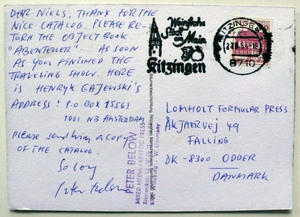 DEAR NIELS, THANX FOR THE
NICE CATALOG. PLEASE RE-
TURN THE OBJECT BOOK
"ABENTEUER". AS SOON
AS YOU FINISHED THE
TRAVELING SHOW. HERE
IS HENRYK GAJEWSKI'S
ADDRESS: P.O.BOX 15561
1001 NB AMSTERDAM
Please send him a copy
OF THE CATALOG
So long
Peter Below
PETER BELOW
W. Germany
Weinfrohe
Stadt am
Main
Kitzingen
KITZINGEN
8710
LOMHOLT FORMULAR PRESS
ÅKJÆRVEJ 49
FALLING
DK-8300 ODDER
DANMARK